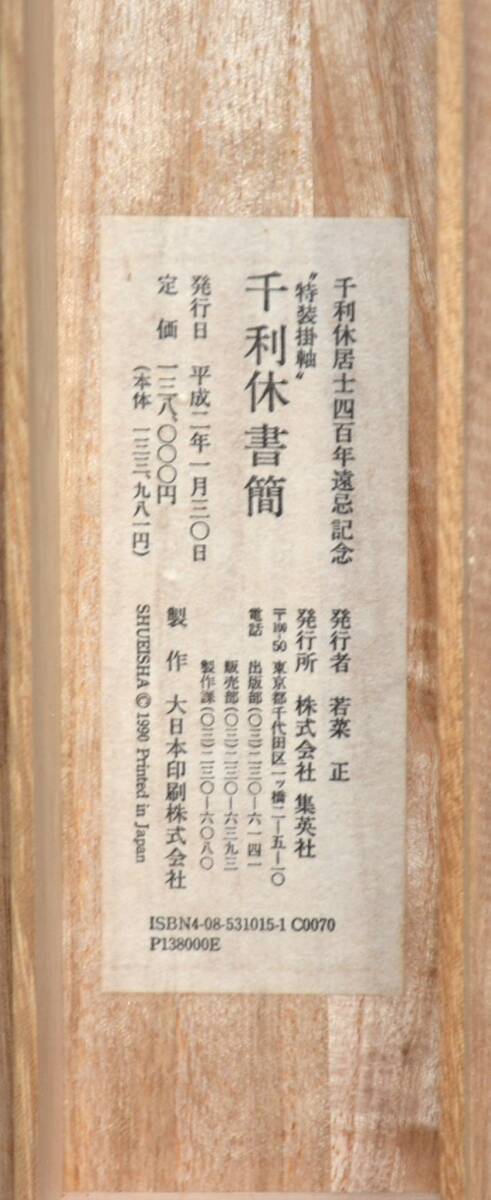 千利休居士四百年遠忌記念
〝特装掛軸〟
千利休書簡
発行日 平成二年一月三〇日
定価 一三八、〇〇〇円
(本体 一三三、九八一円)
発行者 若菜 正
発行所 株式会社 集英社
〒100-50 東京都千代田区一ッ橋二—五—一〇
電話 出版部(〇三)二三〇—六一四一
販売部(〇三)二三〇—六三九三
製作課(〇三)二三〇—六〇八〇
製作 大日本印刷株式会社
SHUEISHA © 1990 Printed in Japan
ISBN4-08-531015-1 C0070
P138000E